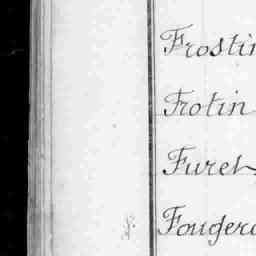 Frostin
Frotin
Furet
Fougera